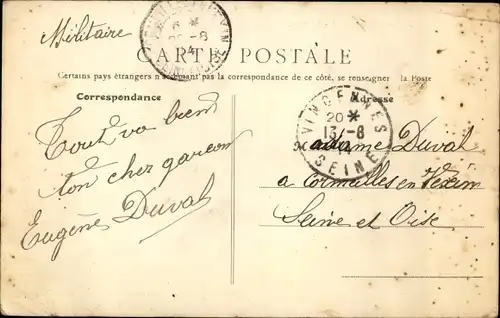 Militaire
CARTE POSTALE
Certains pays étrangers n'acceptant pas la correspondance de ce côté, se renseigner la Poste
Correspondance
Adresse
VINCENNES
20 *
13-8
14
SEINE
Tout va bien
ton cher garçon
Eugène Duval
Madame Duval
a Cormeilles en Vexin
Seine et Oise